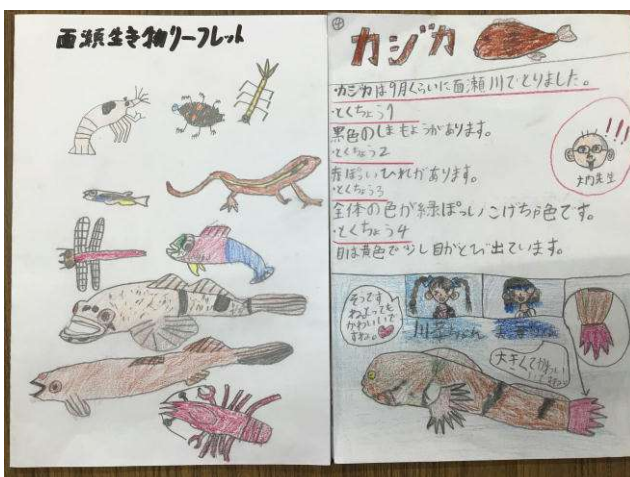 面瀬生き物リーフレット
④
カジカ
カジカは9月くらいに面瀬川でとりました。
・とくちょう1
黒色のしまもようがあります。
・とくちょう2
赤ぽいひれがあります。
・とくちょう3
全体の色が緑ぽっいこげちゃ色です。
・とくちょう4
目は黄色で少し目がとび出ています。
!!!
先生
そうです
ねとっても
かわいいで
すね。
大きくてかっこ